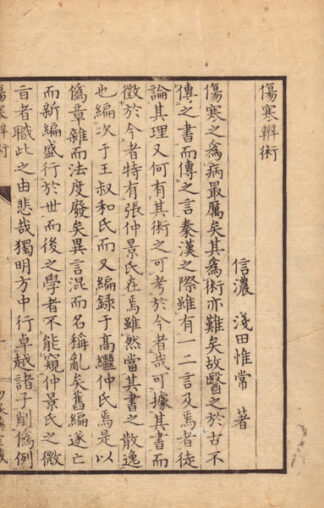 傷寒辨術
信濃 淺田惟常 著
傷寒之為病最厲矣其為術亦難矣故醫之於古不
傳之書而傳之言秦漢之際雖有一二言及焉者徒
論其理又何有其術之可考於今者哉可據其書而
徵於今者特有張仲景氏在焉雖然當其書之散逸
也編次于王叔和氏而又編録于高繼仲氏焉是以
偽章雜而法度發矣異言混而名稱亂矣舊編遂亡
而新編盛行於世而後之學者不能窺仲景氏之微
旨者職此之由悲哉獨明方中行卓越諸子削偽例
傷寒辨術